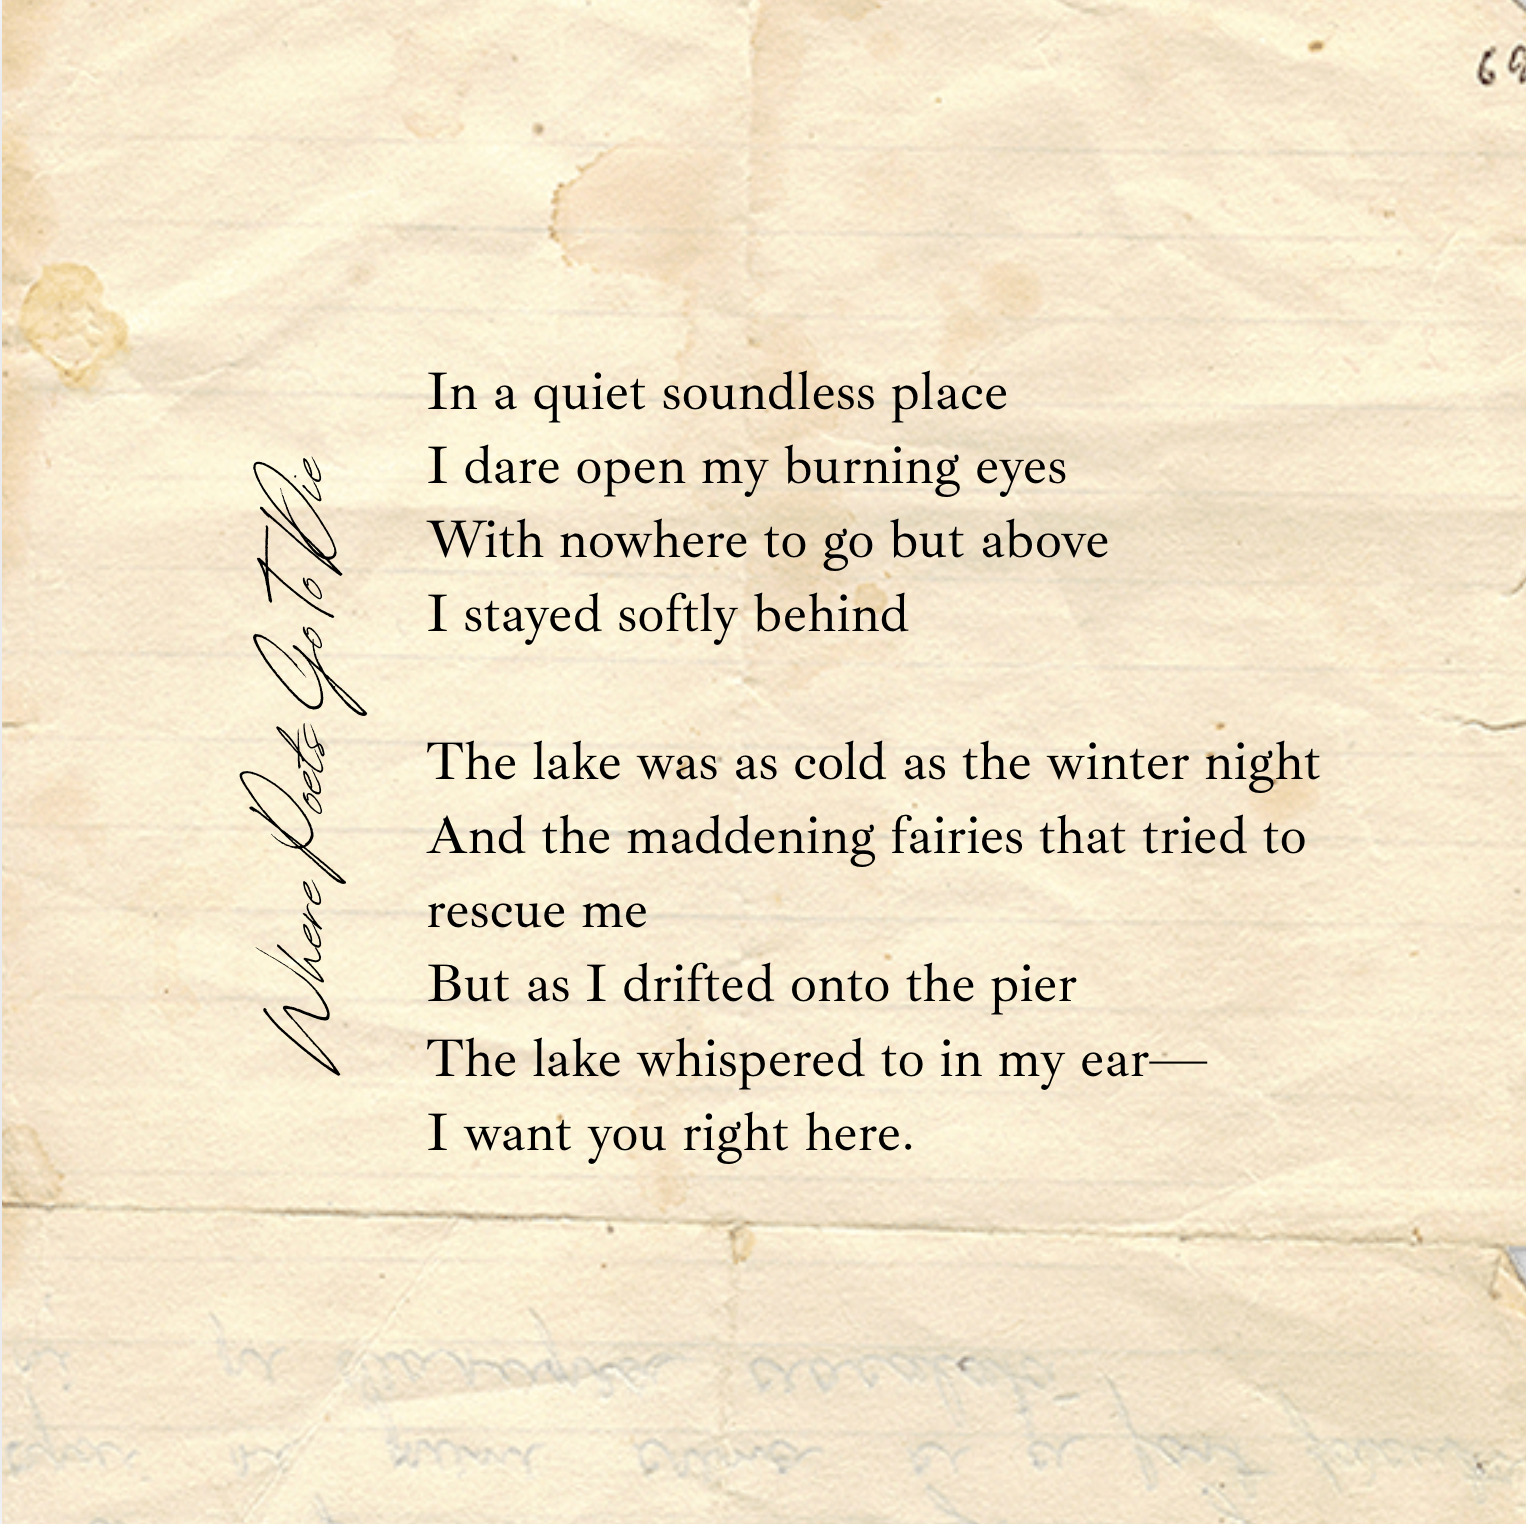 Where Poets Go To Die
In a quiet soundless place
I dare open my burning eyes
With nowhere to go but above
I stayed softly behind
The lake was as cold as the winter night
And the maddening fairies that tried to
rescue me
But as I drifted onto the pier
The lake whispered to in my ear—
I want you right here.